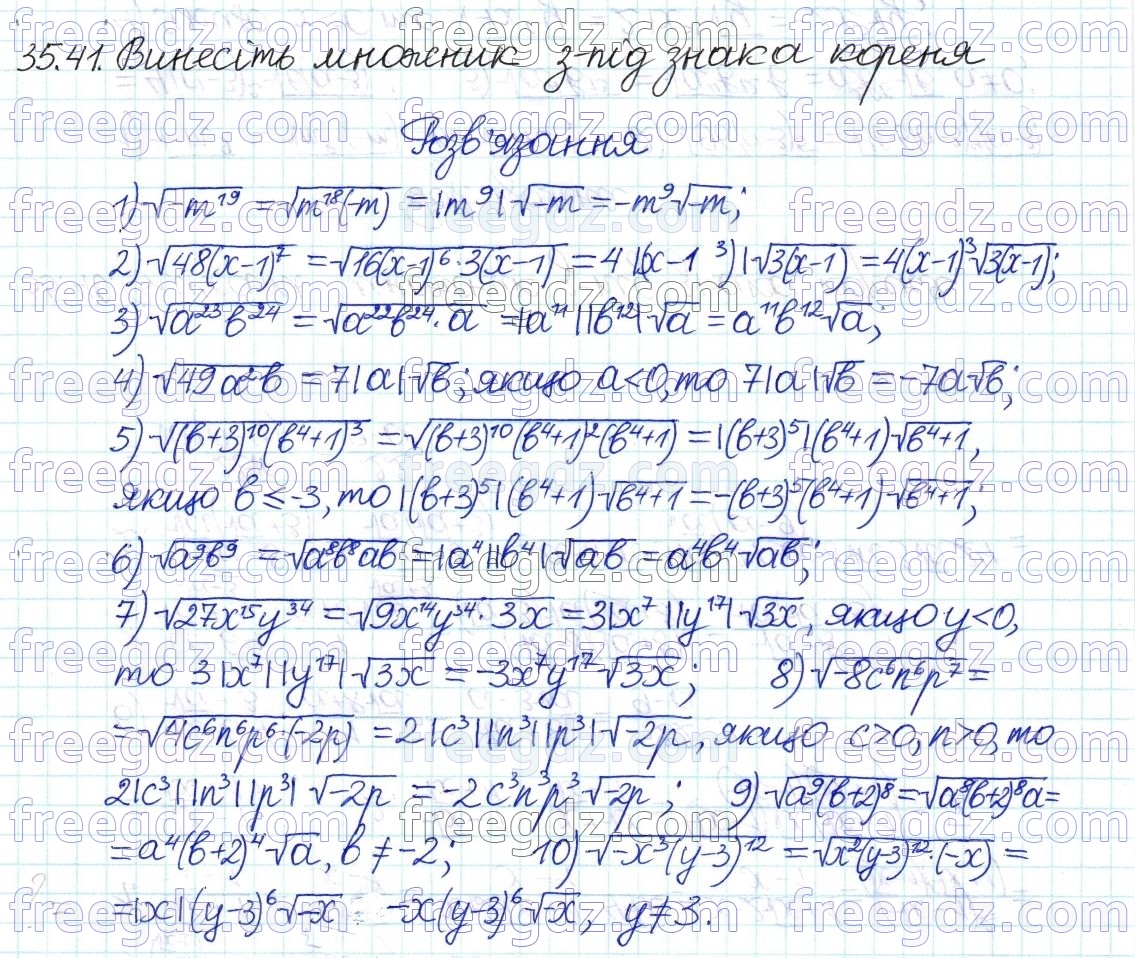 35.41. Винесіть множник з-під знака кореня
Розв'язання
1) √(-m¹⁹) = √(m¹⁸(-m)) = |m⁹|√(-m) = -m⁹√(-m);
2) √(48(x-1)⁷) = √(16(x-1)⁶·3(x-1)) = 4|(x-1³)|√(3(x-1)) = 4(x-1)³√(3(x-1));
3) √(a²³b²⁴) = √(a²²b²⁴·a) = |a¹¹||b¹²|√a = a¹¹b¹²√a;
4) √(49a²b) = 7|a|√b; якщо a<0, то 7|a|√b = -7a√b;
5) √((b+3)¹⁰(b⁴+1)³) = √((b+3)¹⁰(b⁴+1)²(b⁴+1)) = |(b+3)⁵|(b⁴+1)√(b⁴+1),
якщо b ≤ -3, то |(b+3)⁵|(b⁴+1)√(b⁴+1) = -(b+3)⁵(b⁴+1)√(b⁴+1);
6) √(a⁹b⁹) = √(a⁸b⁸ab) = |a⁴||b⁴|√(ab) = a⁴b⁴√(ab);
7) √(27x¹⁵y³⁴) = √(9x¹⁴y³⁴·3x) = 3|x⁷||y¹⁷|√(3x), якщо y<0,
то 3|x⁷||y¹⁷|√(3x) = -3x⁷y¹⁷√(3x); 8) √(-8c⁶n⁶p⁷) =
= √(4c⁶n⁶p⁶·(-2p)) = 2|c³||n³||p³|√(-2p), якщо c>0, n>0, то
2|c³||n³||p³|√(-2p) = -2c³n³p³√(-2p); 9) √(a⁹(b+2)⁸) = √(a⁸(b+2)⁸a) =
= a⁴(b+2)⁴√a, b ≠ -2; 10) √(-x³(y-3)¹²) = √(x²(y-3)¹²·(-x)) =
= |x|(y-3)⁶√(-x) -x(y-3)⁶√(-x), y ≠ 3.